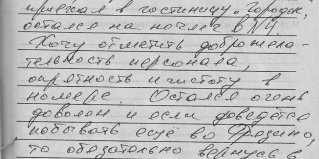 приехал в гостиницу "Городок",
остался на ночлег в №7.
Хочу отметить доброжела-
тельность персонала,
опрятность и чистоту в
номере. Остался очень
доволен и если доведётся
побывать ещё во Фрязино,
то обязательно вернусь в